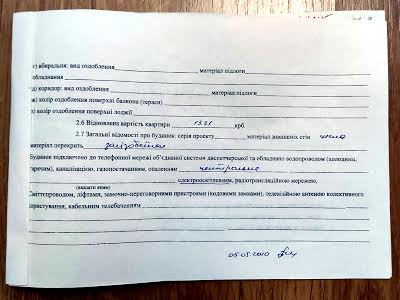 г) вбиральня: вид оздоблення____________ матеріал підлоги____________
обладнання____________
д) коридор: вид оздоблення____________ матеріал підлоги____________
ж) колір оздоблення поверхні балкона (тераси)____________
з) колір оздоблення поверхні лоджії____________
2.6 Відновлена вартість квартири 1321 крб.
2.7 Загальні відомості про будинок: серія проекту____________ матеріал зовнішніх стін цегла
матеріал перекрить залізобетон
Будинок підключено до телефонної мережі об'єднаної системи диспетчерської та обладнано водопроводом (холодним,
гарячим), каналізацією, газопостачанням, опаленням центральне
електроосвітленням, радіотрансляційною мережею,
(вказати яким)
Сміттєпроводом, ліфтами, замочно-переговорними пристроями (кодовими замками), телевізійною антеною колективного
користування, кабельним телебаченням____________
05.05.2010